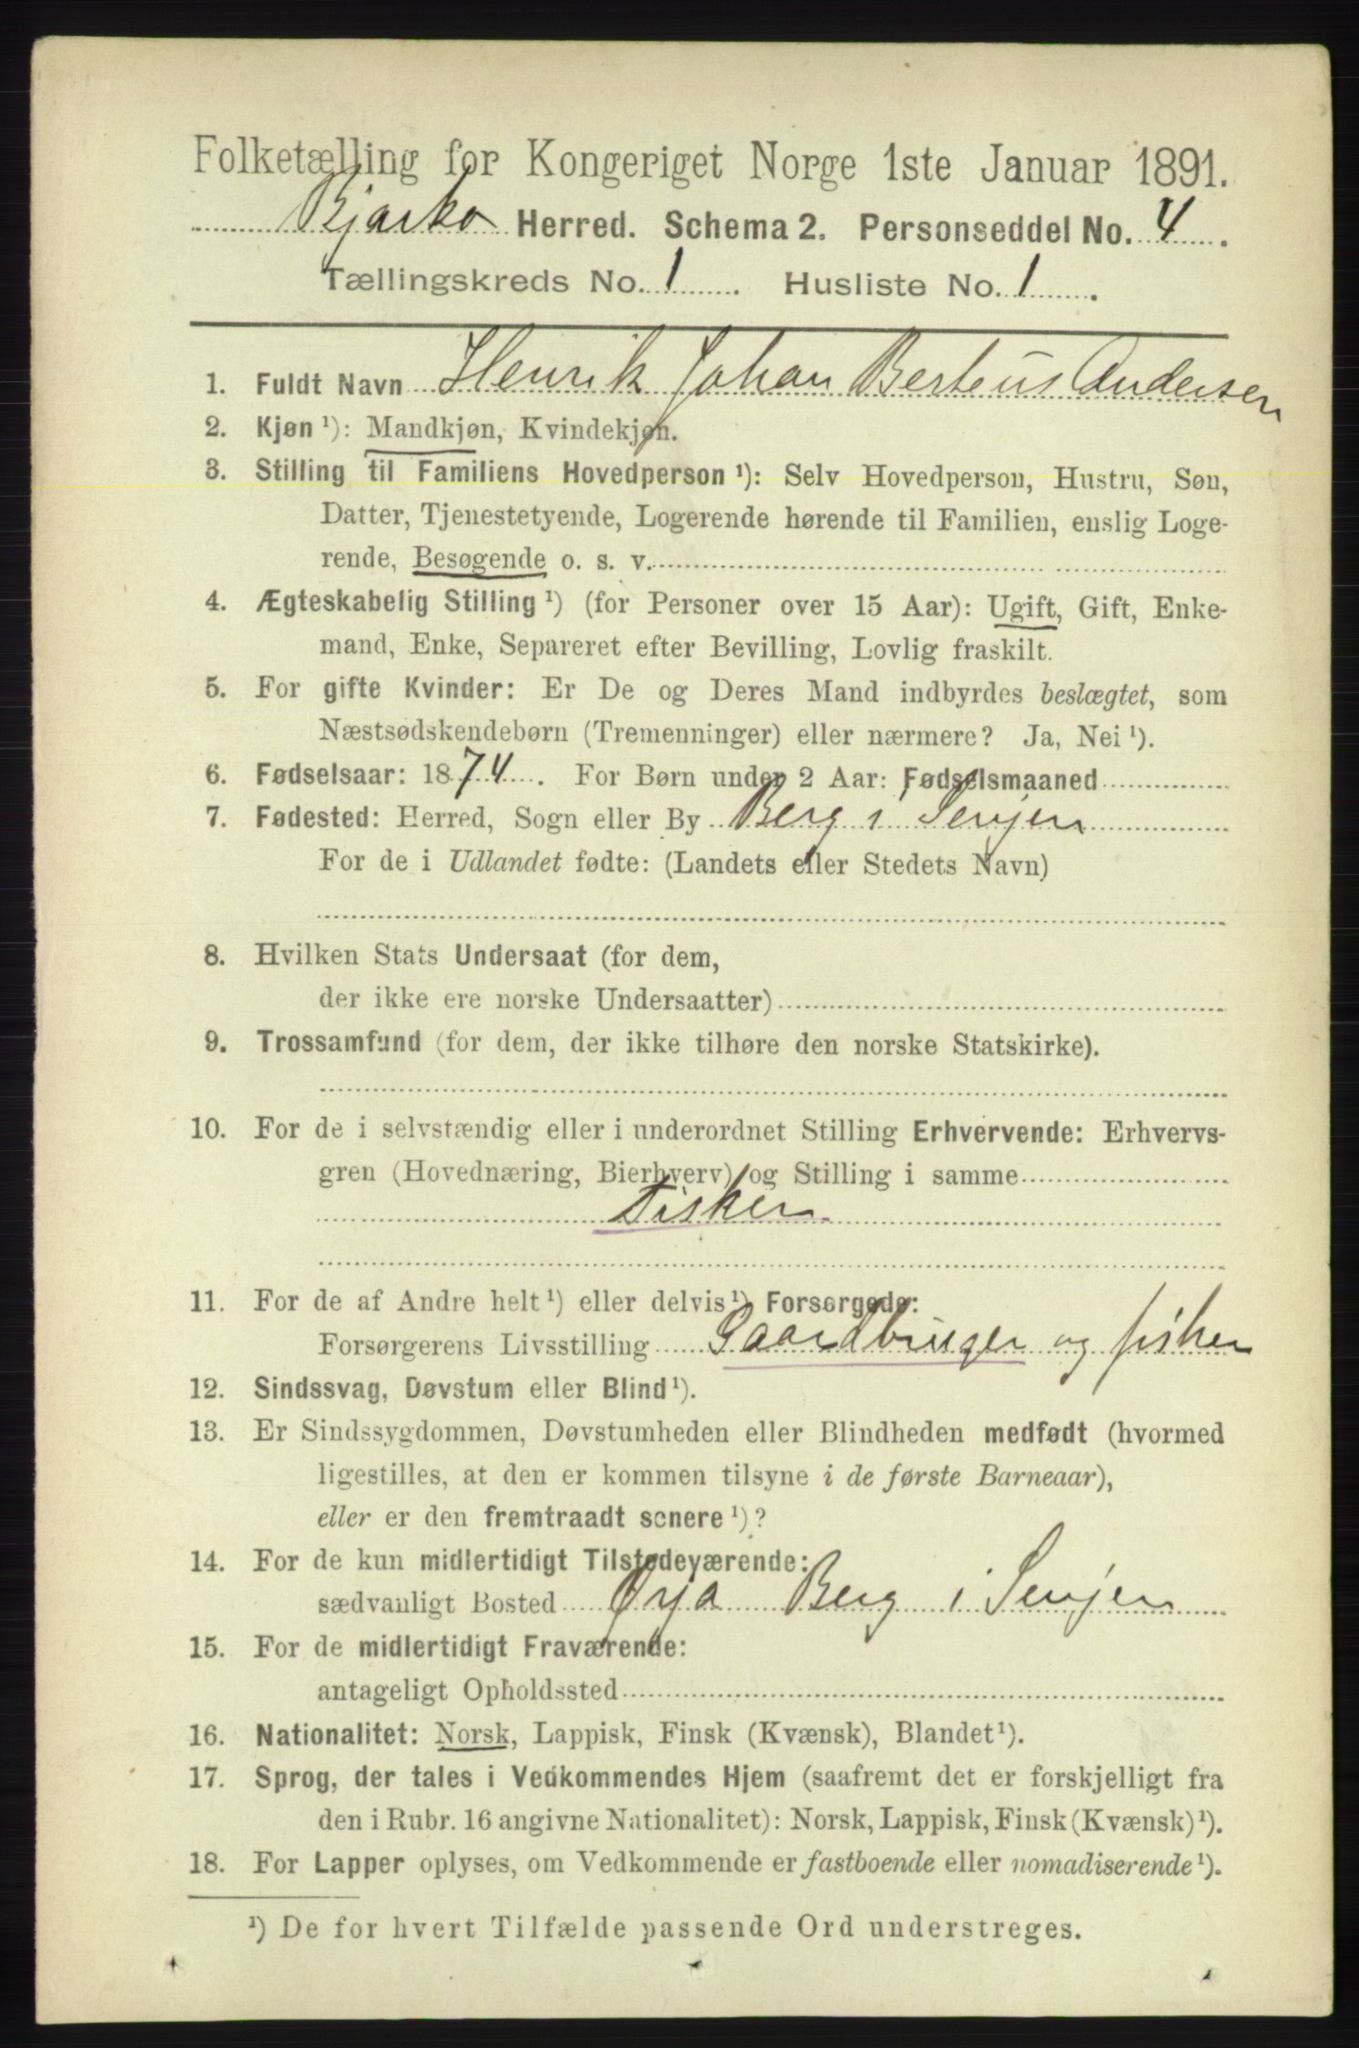 Folketælling for Kongeriget Norge 1ste Januar 1891.
Bjarkø Herred. Schema 2. Personseddel No. 4.
Tællingskreds No. 1. Husliste No. 1.
1. Fuldt Navn Henrik Johan Berteus Andersen
2. Kjøn ¹): Mandkjøn, Kvindekjøn.
3. Stilling til Familiens Hovedperson ¹): Selv Hovedperson, Hustru, Søn,
Datter, Tjenestetyende, Logerende hørende til Familien, enslig Loge-
rende, Besøgende o. s. v.
4. Ægteskabelig Stilling ¹) (for Personer over 15 Aar): Ugift, Gift, Enke-
mand, Enke, Separeret efter Bevilling, Lovlig fraskilt.
5. For gifte Kvinder: Er De og Deres Mand indbyrdes beslægtet, som
Næstsødskendebørn (Tremenninger) eller nærmere? Ja, Nei ¹).
6. Fødselsaar: 1874. For Børn under 2 Aar: Fødselsmaaned
7. Fødested: Herred, Sogn eller By Berg i Senjen
For de i Udlandet fødte: (Landets eller Stedets Navn)
8. Hvilken Stats Undersaat (for dem,
der ikke ere norske Undersaatter)
9. Trossamfund (for dem, der ikke tilhøre den norske Statskirke).
10. For de i selvstændig eller i underordnet Stilling Erhvervende: Erhvervs-
gren (Hovednæring, Bierhverv) og Stilling i samme
Fisker
11. For de af Andre helt ¹) eller delvis ¹) Forsørgede:
Forsørgerens Livsstilling Gaardbruger og fisker
12. Sindssvag, Døvstum eller Blind ¹).
13. Er Sindssygdommen, Døvstumheden eller Blindheden medfødt (hvormed
ligestilles, at den er kommen tilsyne i de første Barneaar),
eller er den fremtraadt senere ¹)?
14. For de kun midlertidigt Tilstedeværende:
sædvanligt Bosted Øyja Berg i Senjen
15. For de midlertidigt Fraværende:
antageligt Opholdssted
16. Nationalitet: Norsk, Lappisk, Finsk (Kvænsk), Blandet ¹).
17. Sprog, der tales i Vedkommendes Hjem (saafremt det er forskjelligt fra
den i Rubr. 16 angivne Nationalitet): Norsk, Lappisk, Finsk (Kvænsk) ¹).
18. For Lapper oplyses, om Vedkommende er fastboende eller nomadiserende ¹).
¹) De for hvert Tilfælde passende Ord understreges.